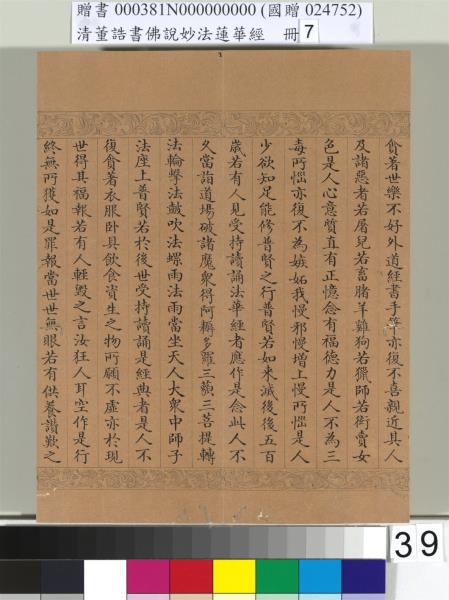 贈書 000381N000000000 (國贈 024752)
清董誥書佛說妙法蓮華經 冊 7
貪著世樂不好外道經書手筆亦復不喜親近其人
及諸惡者若屠兒若畜豬羊雞狗若獵師若衒賣女
色是人心意質直有正憶念有福德力是人不為三
毒所惱亦復不為嫉妬我慢邪慢增上慢所惱是人
少欲知足能修普賢之行普賢若如來滅後後五百
歲若有人見受持讀誦法華經者應作是念此人不
久當詣道場破諸魔眾得阿耨多羅三藐三菩提轉
法輪擊法鼓吹法螺雨法雨當坐天人大眾中師子
法座上普賢若於後世受持讀誦是經典者是人不
復貪著衣服臥具飲食資生之物所願不虛亦於現
世得其福報若有人輕毀之言汝狂人耳空作是行
終無所獲如是罪報當世世無眼若有供養讚歎之
39